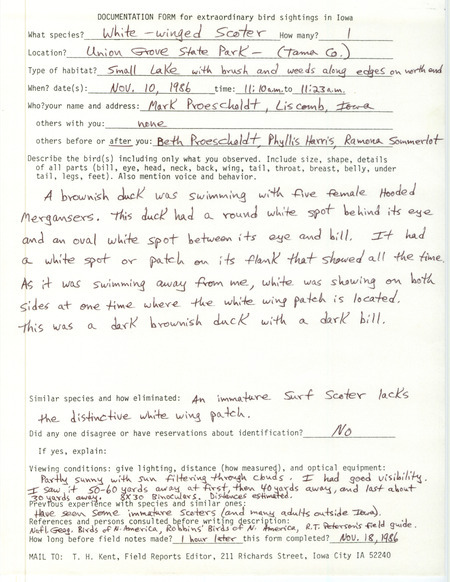 DOCUMENTATION FORM for extraordinary bird sightings in Iowa
What species? White-winged Scoter How many? 1
Location? Union Grove State Park - (Tama Co.)
Type of habitat? Small Lake with brush and weeds along edges on north end
When? date(s): Nov. 10, 1986 time: 11:10a.m. to 11:23a.m.
Who?your name and address: Mark Proescholdt, Liscomb, Iowa
others with you: none
others before or after you: Beth Proescholdt, Phyllis Harris, Ramona Sommerlot
Describe the bird(s) including only what you observed. Include size, shape, details
of all parts (bill, eye, head, neck, back, wing, tail, throat, breast, belly, under
tail, legs, feet). Also mention voice and behavior.
A brownish duck was swimming with five female Hooded
Mergansers. This duck had a round white spot behind its eye
and an oval white spot between its eye and bill. It had
a white spot or patch on its flank that showed all the time.
As it was swimming away from me, white was showing on both
sides at one time where the white wing patch is located.
This was a dark brownish duck with a dark bill.
Similar species and how eliminated: An immature Surf Scoter lacks
the distinctive white wing patch.
Did any one disagree or have reservations about identification? No
If yes, explain:
Viewing conditions: give lighting, distance (how measured), and optical equipment:
Partly sunny with sun filtering through clouds. I had good visibility.
I saw it 50-60 yards away at first, then 40 yards away, and last about
30 yards away. 8X30 Binoculars. Distances estimated.
Previous experience with species and similar ones:
Have seen some immature scoters (and many adults outside Iowa).
References and persons consulted before writing description:
Nat'l Geog. Birds of N. America, Robbins' Birds of N. America, R.T. Peterson's field guide.
How long before field notes made? 1 hour later this form completed? Nov. 18, 1986
MAIL TO: T. H. Kent, Field Reports Editor, 211 Richards Street, Iowa City IA 52240